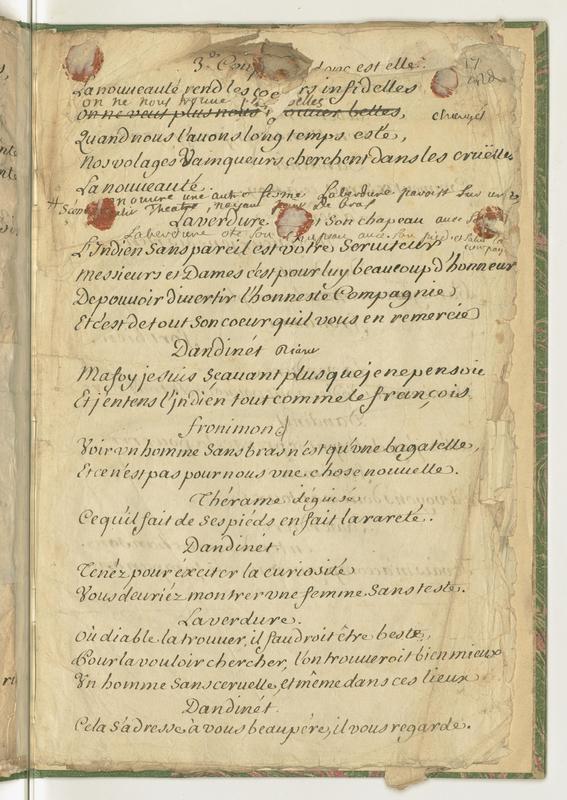 3.e est elle.
La nouveauté rend les infidelles
on ne nous trouve
on ne veut plus nous belles,
changés
Quand nous l'avons longtemps esté,
Nos volages Vainqueurs cherchent dans les cruëlles
La nouveauté.
une autre ferme Laverdure paroist sur un
Théatre, n'ayant de bras
Laverdure. Son chapeau avec
Laverdure ote Son chapeau avec Son pied et salue la
compag
L'Indien Sans pareil est votre Serviteur
Messieurs et Dames c'est pour luy beaucoup d'honneur
De pouvoir divertir l'honneste Compagnie
Et c'est de tout Son coeur quil vous en remercie
Dandinét Riant
Mafoy je suis Scavant plus que je ne pensois
Et j'entens l'jndién tout comme le françois.
fronimond
Voir vn homme Sans bras n'est qu'vne bagatelle,
Et ce n'est pas pour nous vne chose nouuelle.
Thérame déguisé
Ce qu'il fait de Ses pieds en fait la rareté.
Dandinét
Tenéz pour éxciter la curiosité
Vous deuriéz montrer vne femme Sans teste.
Laverdure.
Où diable la trouuer, il faudroit être beste,
Pour la vouloir chercher, l'on trouueroit bien mieux
Vn homme Sans ceruelle, et même dans ces lieux
Dandinét.
Cela S'adresse à vous beaupére, il vous regarde.